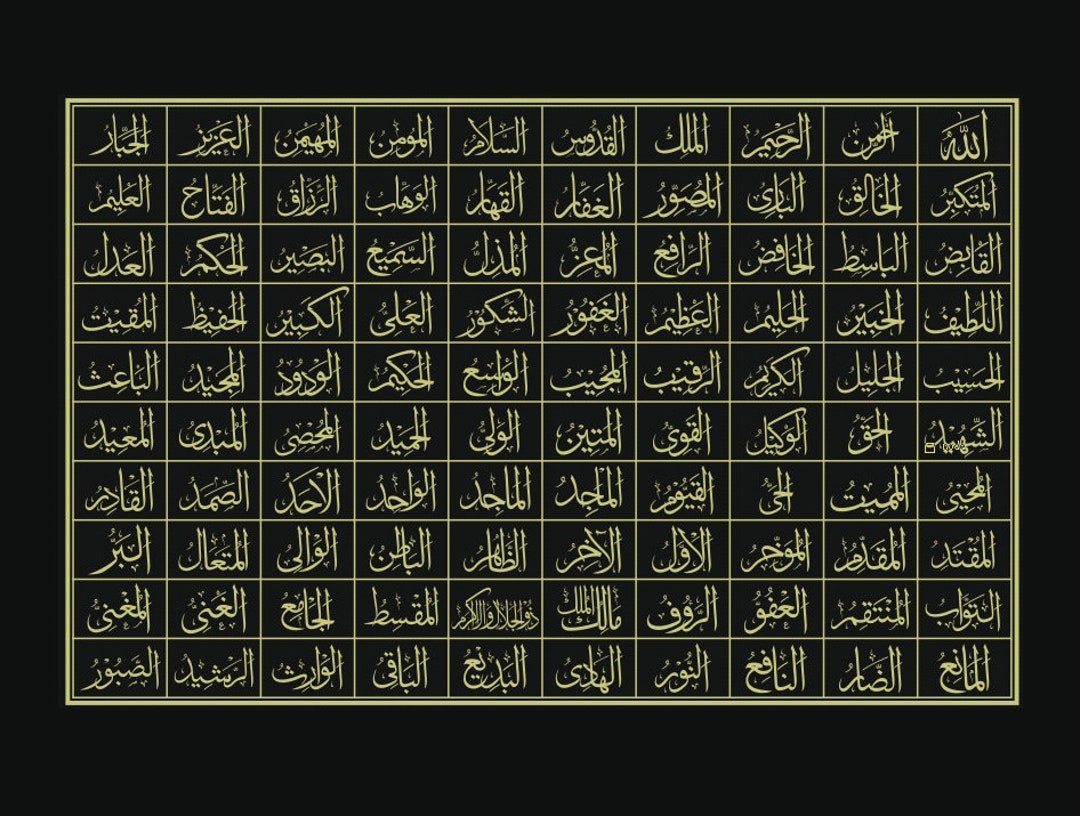 الله الرحمن الرحيم الملك القدوس السلام المومن المهيمن العزيز الجبار
المتكبر الخالق البارى المصور الغفار القهار الوهاب الرزاق الفتاح العليم
القابض الباسط الخافض الرافع المعز المذل السميع البصير الحكم العدل
اللطيف الخبير الحليم العظيم الغفور الشكور العلى الكبير الحفيظ المقيت
الحسيب الجليل الكريم الرقيب المجيب الواسع الحكيم الودود المجيد الباعث
الشهيد الحق الوكيل القوى المتين الولى الحميد المحصى المبدى المعيد
المحيى المميت الحى القيوم الماجد الماجد الواحد الاحد الصمد القادر
المقتدر المقدم المؤخر الاول الآخر الظاهر الباطن الوالى المتعال البر
التواب المنتقم العفو الرؤف مالك الملك ذو الجلال والاكرام المقسط الجامع الغنى المغنى
المانع الضار النافع النور الهادى البديع الباقى الوارث الرشيد الصبور